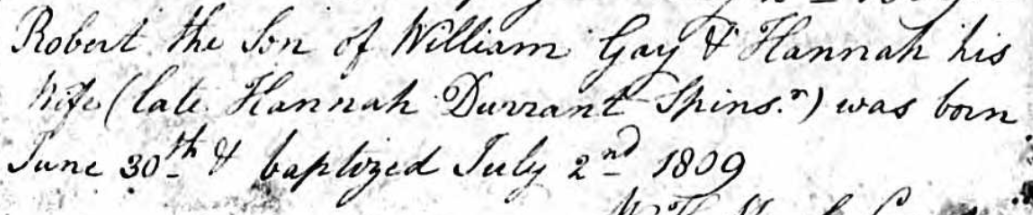 Robert the Son of William Gay & Hannah his
Wife (late Hannah Durrant Spins.r) was born
June 30th & baptized July 2nd 1809